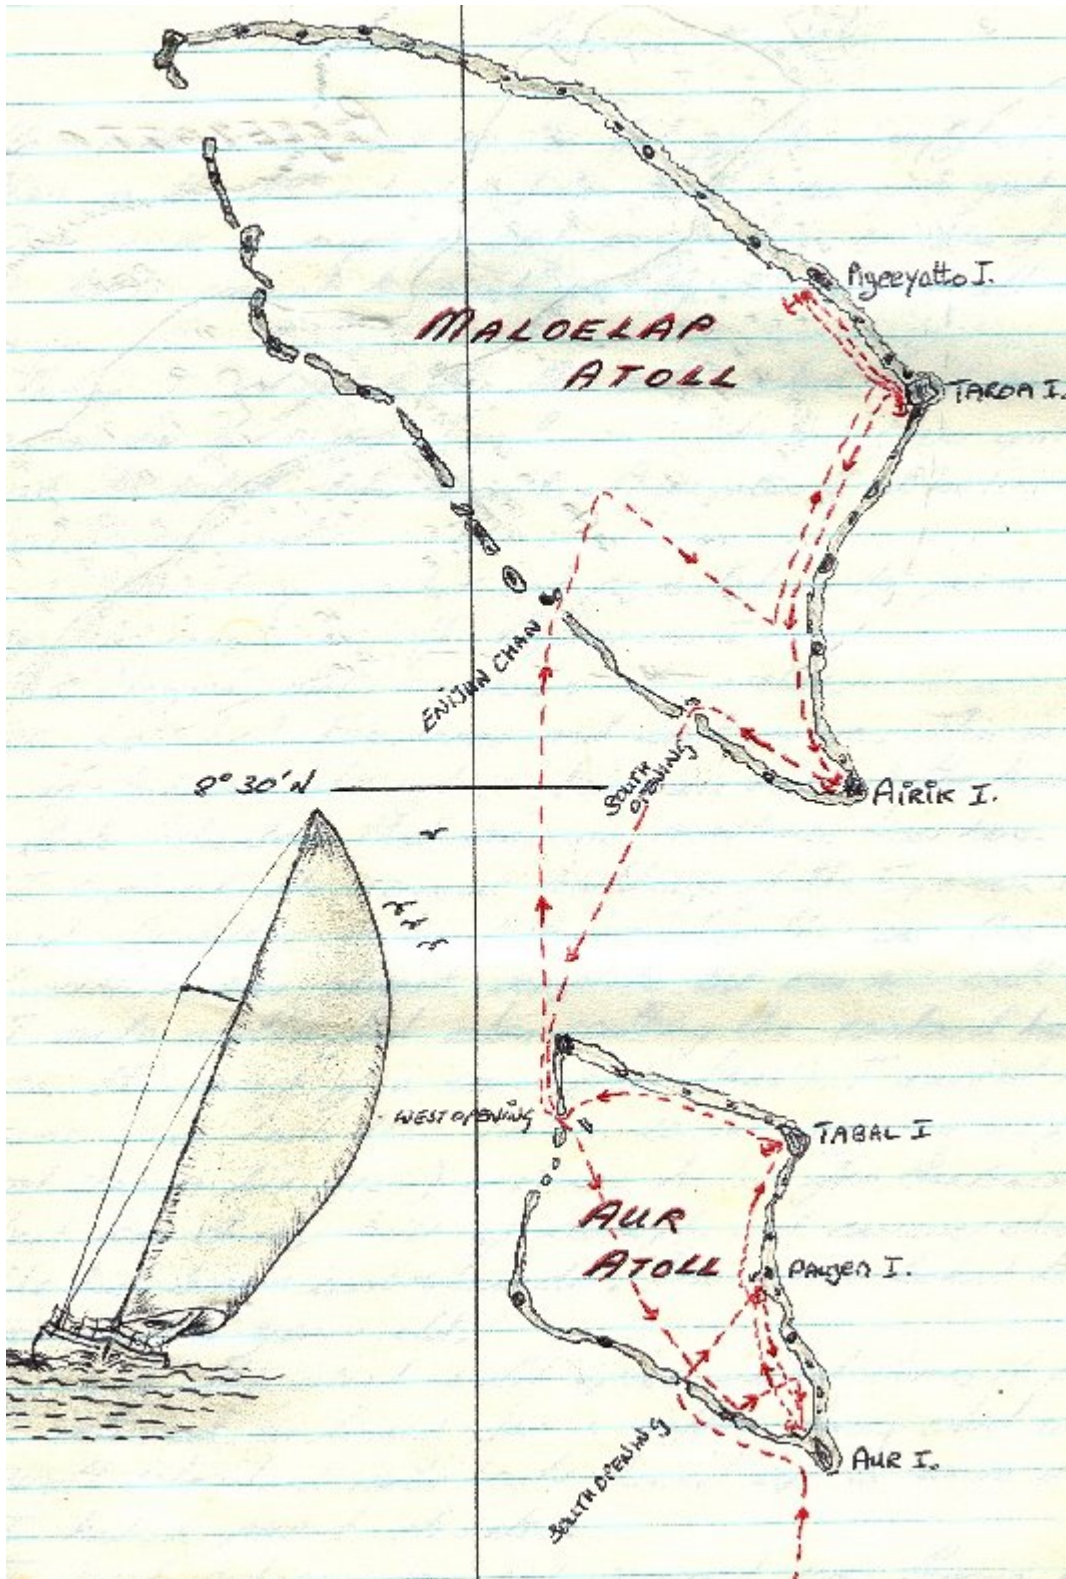 Pigeeyatto I.
MALOELAP
ATOLL
TAROA I.
ENIJUN CHAN
SOUTH
OPENING
8° 30' N
AIRIK I.
WEST OPENING
TABAL I
AUR
ATOLL
AUR I.
SOUTH OPENING